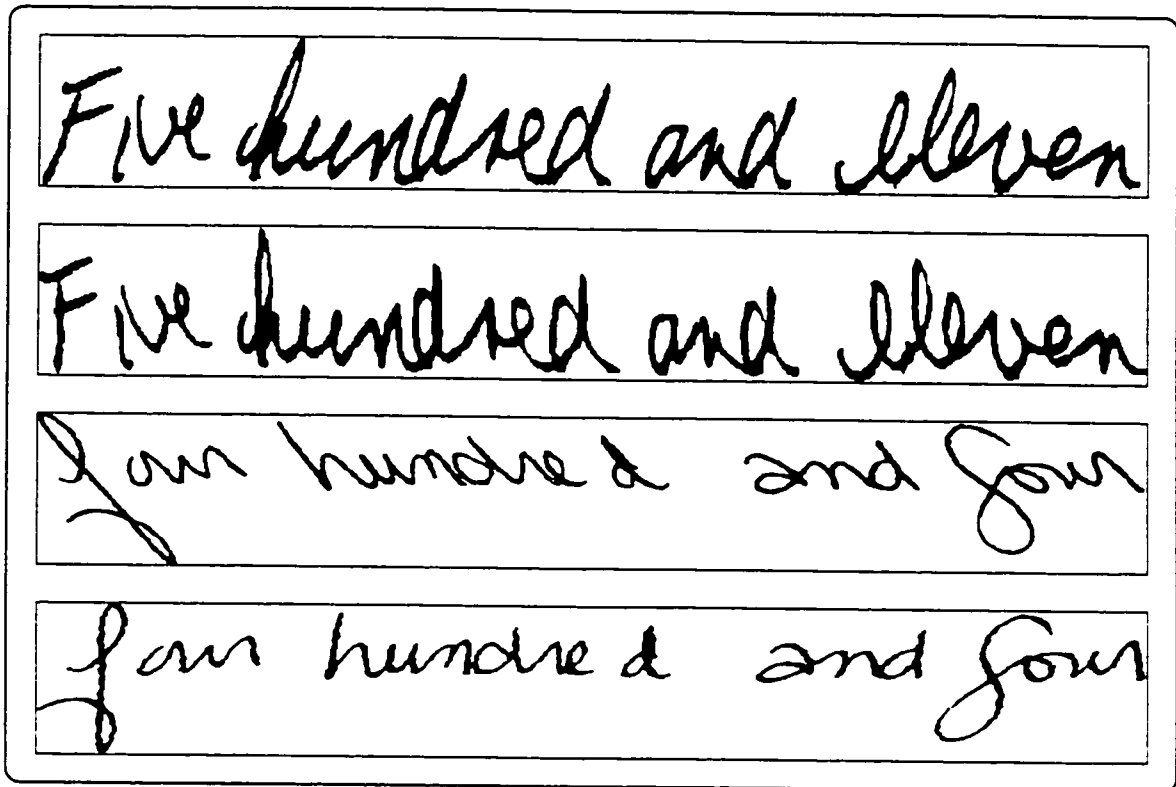 Five hundred and eleven
Five hundred and eleven
four hundred and four
four hundred and four